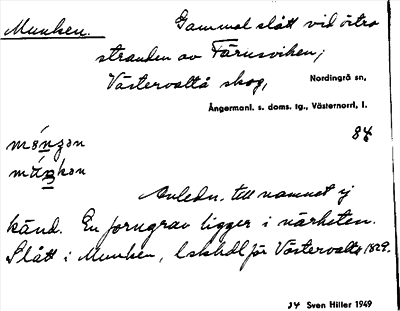 Munken. Gammal slått vid östra
stranden av Färusviken;
Västervalta skog, Nordingrå sn,
Ångermanl. s. doms. tg., Västernorrl. l.
84
Anledn. till namnet ej
känd. En forngrav ligger i närheten.
Slått i Munken, för Västervalta 1829.
Sven Hiller 1949